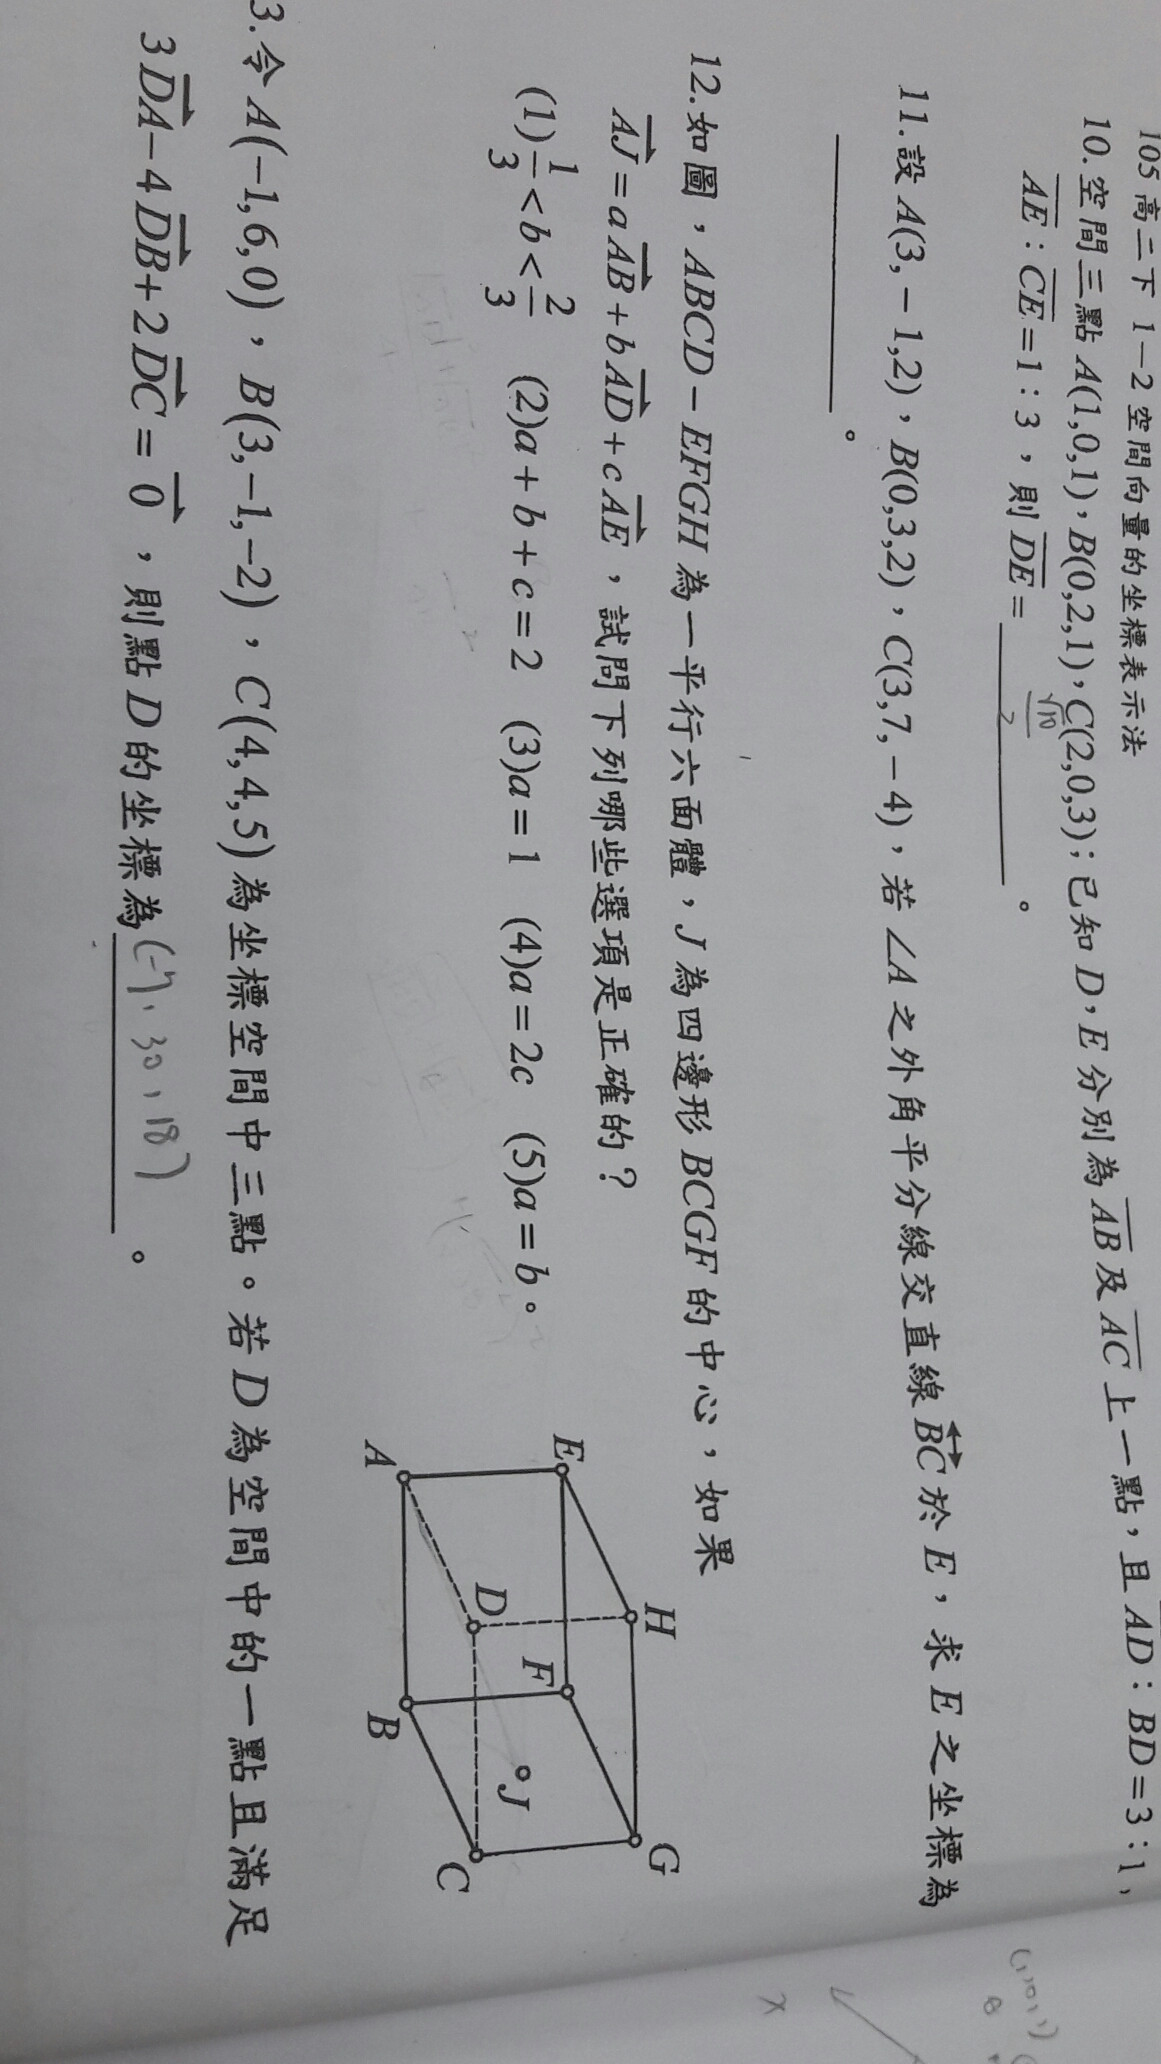 105高二下 1－2空間向量的坐標表示法
10.空間三點A(1,0,1)，B(0,2,1)，C(2,0,3)；已知D，E分別為AB及AC上一點，且AD：BD=3：1，
AE：CE=1：3，則DE=√10/2。
11.設A(3,－1,2)，B(0,3,2)，C(3,7,－4)，若∠A之外角平分線交直線BC於E，求E之坐標為
。
12.如圖，ABCD－EFGH為一平行六面體，J為四邊形BCGF的中心，如果
AJ=aAB+bAD+cAE，試問下列哪些選項是正確的？
(1)1/3<b<2/3 (2)a+b+c=2 (3)a=1 (4)a=2c (5)a=b。
E
H
F
G
A
D
J
B
C
3.令A(－1,6,0)，B(3,－1,－2)，C(4,4,5)為坐標空間中三點。若D為空間中的一點且滿足
3DA－4DB+2DC=0，則點D的坐標為(-7，30，18)。
(1,0,1)
x